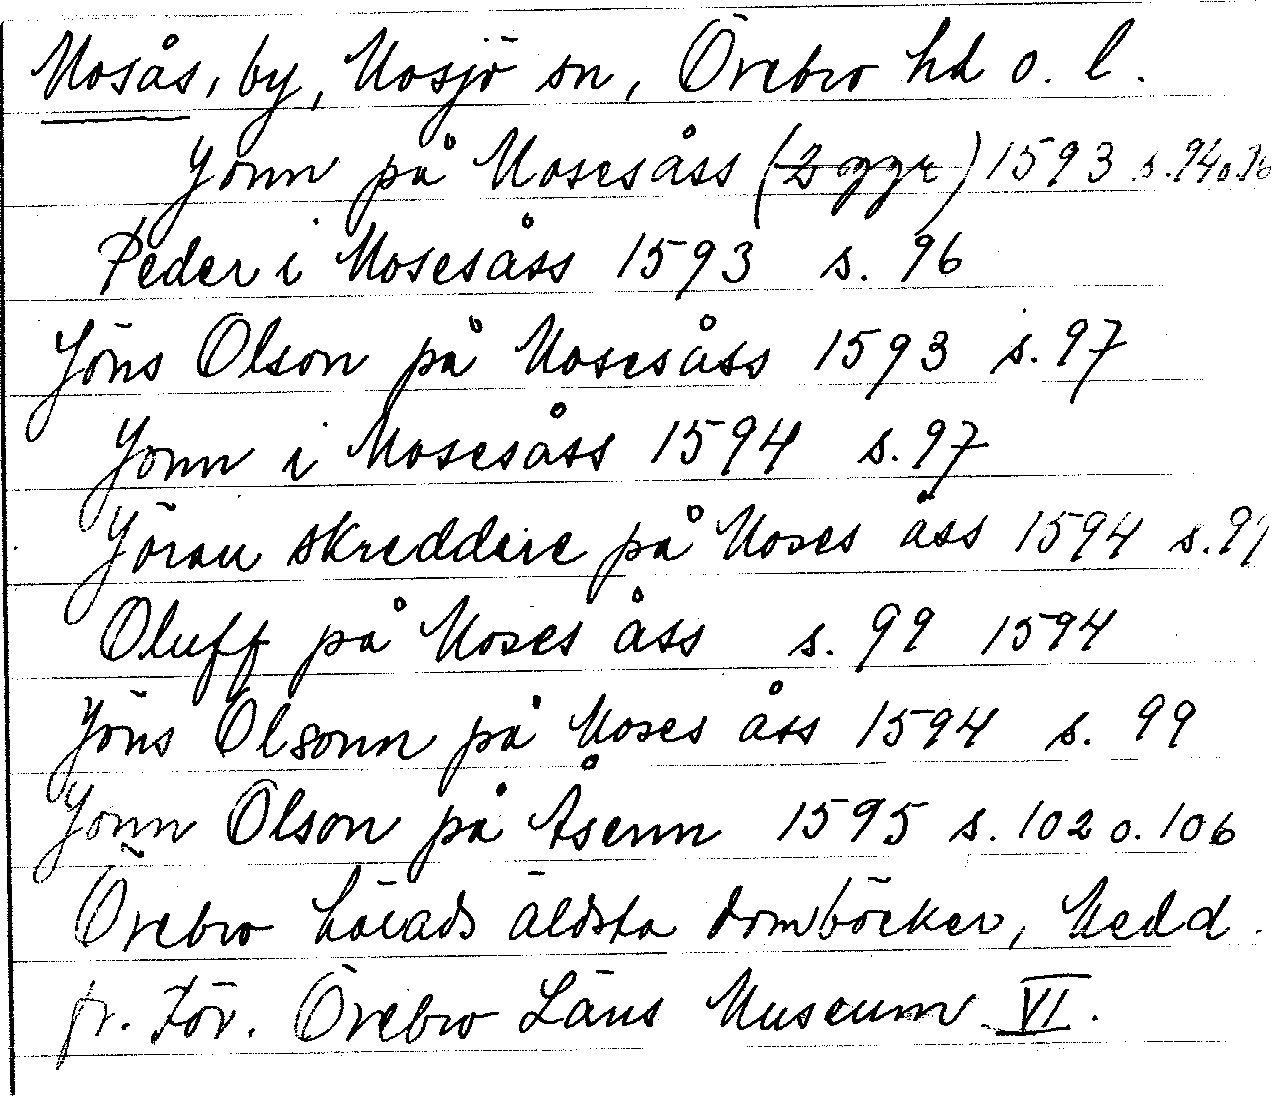 Mosås, by, Mosjö sn, Örebro hd o. l.
Jonn på Mosesåss (2 ggr) 1593 s. 94 o. 96
Peder i Mosesåss 1593 s. 96
Jöns Olson på Mosesåss 1593 s. 97
Jonn i Mosesåss 1594 s. 97
Jöran skreddere på Moses åss 1594 s. 99
Oluff på Moses åss s. 99 1594
Jöns Olsonn på Moses åss 1594 s. 99
Jonn Olson på Åsenn 1595 s. 102 o. 106
Örebro härads äldsta domböcker, Medd.
fr. För. Örebro Läns Museum VI.